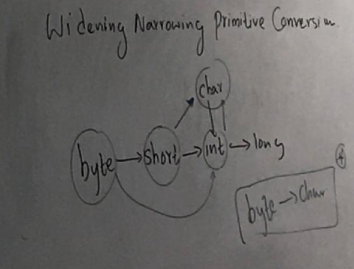 Widening Narrowing Primitive Conversion
char
byte → short → int → long
byte → char